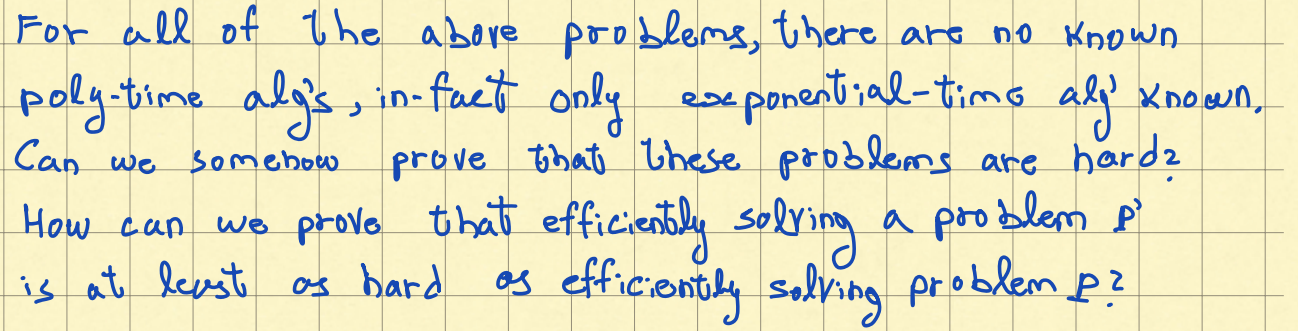 For all of the above problems, there are no known
poly-time alg's, in-fact only exponential-time alg' known.
Can we somehow prove that these problems are hard?
How can we prove that efficiently solving a problem P'
is at least as hard as efficiently solving problem P?